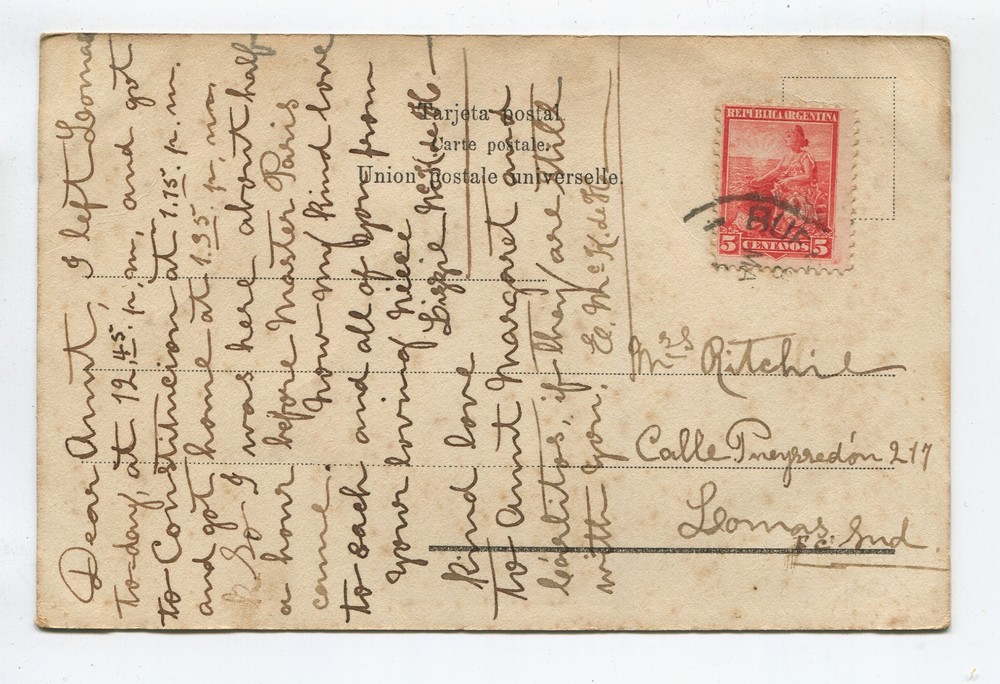 Dear Aunt, I left Lomas
to-day, at 12.45. p.m, and got
to Constitucion at 1.15. p.m.
and got home at 1.35. p.m.
So I was here about half
a hour before Master Paris
came. Now my kind love
to each and all of you from
your loving Niece
Lizzie McK de H
Kind love
to Aunt Margaret and
if they are still
with you. McK. de H.
Tarjeta postal
Carte postale.
Union postale universelle.
REPUBLICA ARGENTINA
5 CENTAVOS 5
BUE
Mrs Ritchie
Calle Pueyrredón 217
Lomas
F.C. Sud.